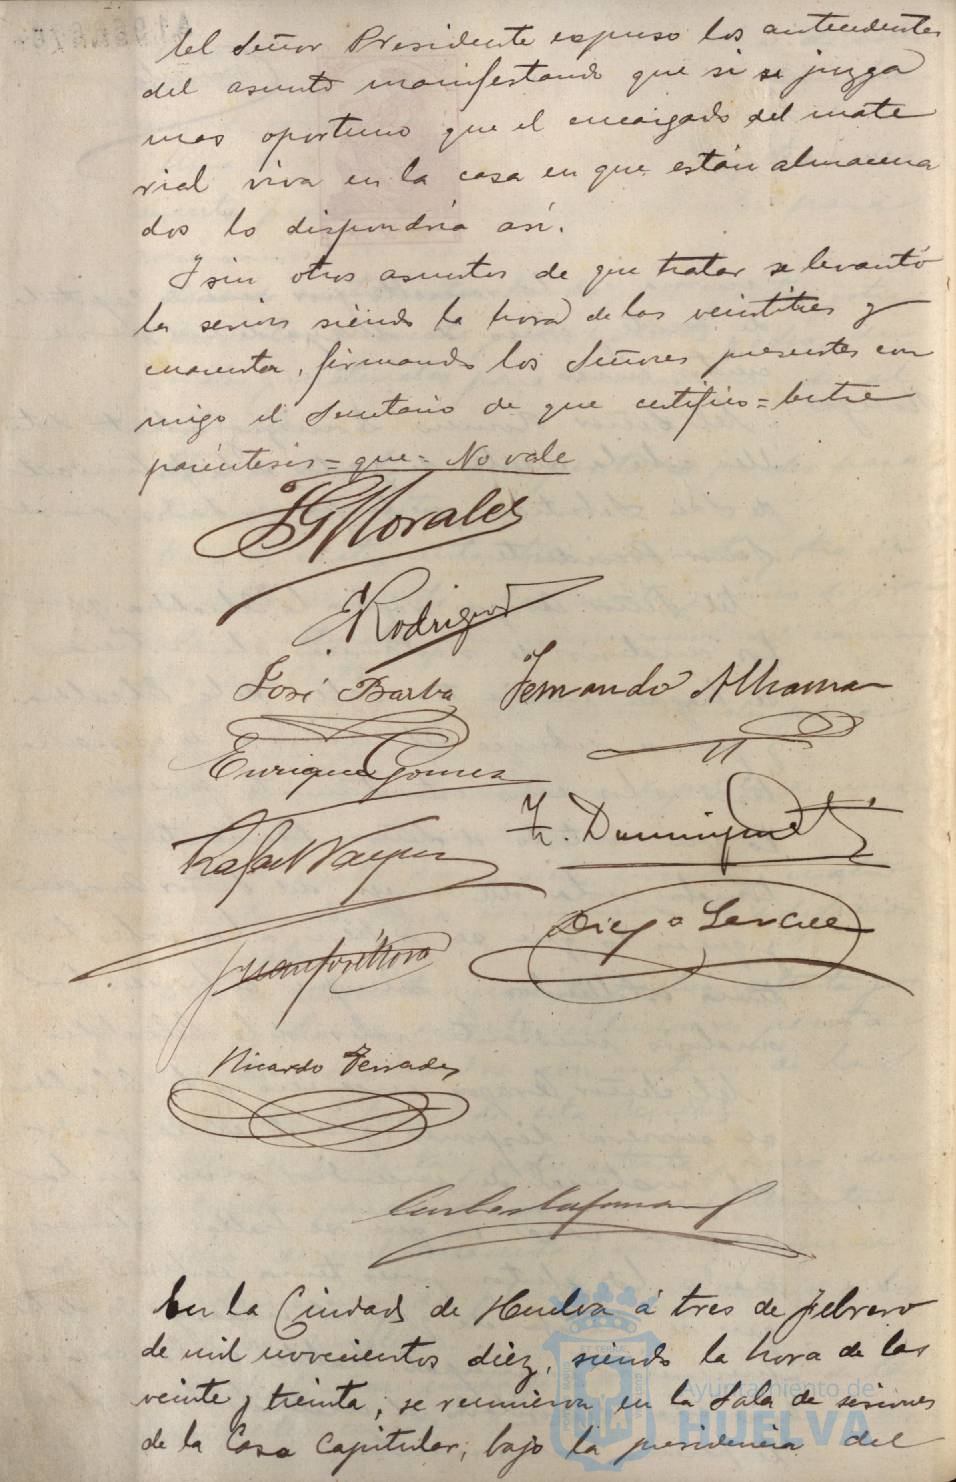 El Señor Presidente expuso los antecedentes
del asunto manifestando que si se juzga
mas oportuno que el encargado del mate
rial viva en la casa en que están almacena
dos lo dispondria así.
Y sin otros asuntos de que tratar se levantó
la sesion siendo la hora de las veintitres y
cuarenta, firmando los Señores presentes con
migo el Secretario de que certifico = Entre
paréntesis = que = No vale
Morales
Rodriguez
José Barba Fernando Alhama
Enrique Gomez
F. Dominguez
Rafael Vazquez
Diego
Juan José Mora
Ricardo Terrades
En la Ciudad de Huelva á tres de Febrero
de mil novecientos diez, siendo la hora de las
veinte y treinta, se reunieron en la Sala de sesiones
de la Casa Capitular, bajo la presidencia del
Ayuntamiento de
HUELVA